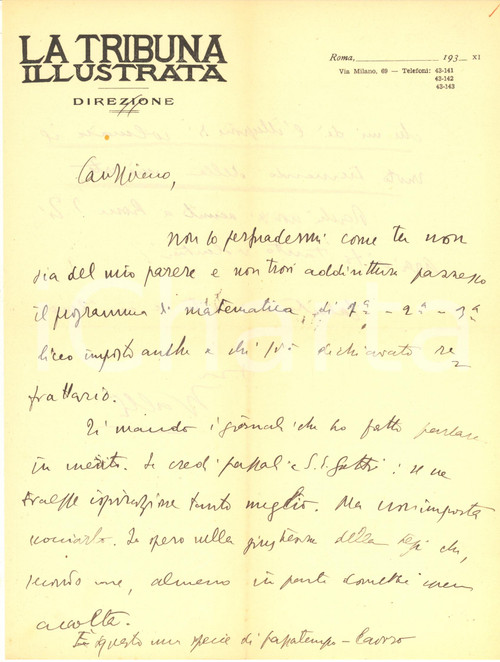 LA TRIBUNA
ILLUSTRATA
DIREZIONE
Roma, 193 XI
Via Milano, 69 — Telefoni: 43-141
43-142
43-143
non so persuadermi come tu non
sia del mio parere e non trovi addirittura pazzesco
il programma di matematica di 1ª - 2ª - 3ª
liceo imposto anche a chi s'è dichiarato re
frattario.
Ti mando i giornali che ho fatto parlare
in merito. Se credi passali a S.E. : se ne
traesse ispirazione tanto meglio. Ma non importa
Io spero nella giustezza della tesi che,
secondo me, almeno in parte dovrebbe essere
accolta.
È questo una specie di passatempo -